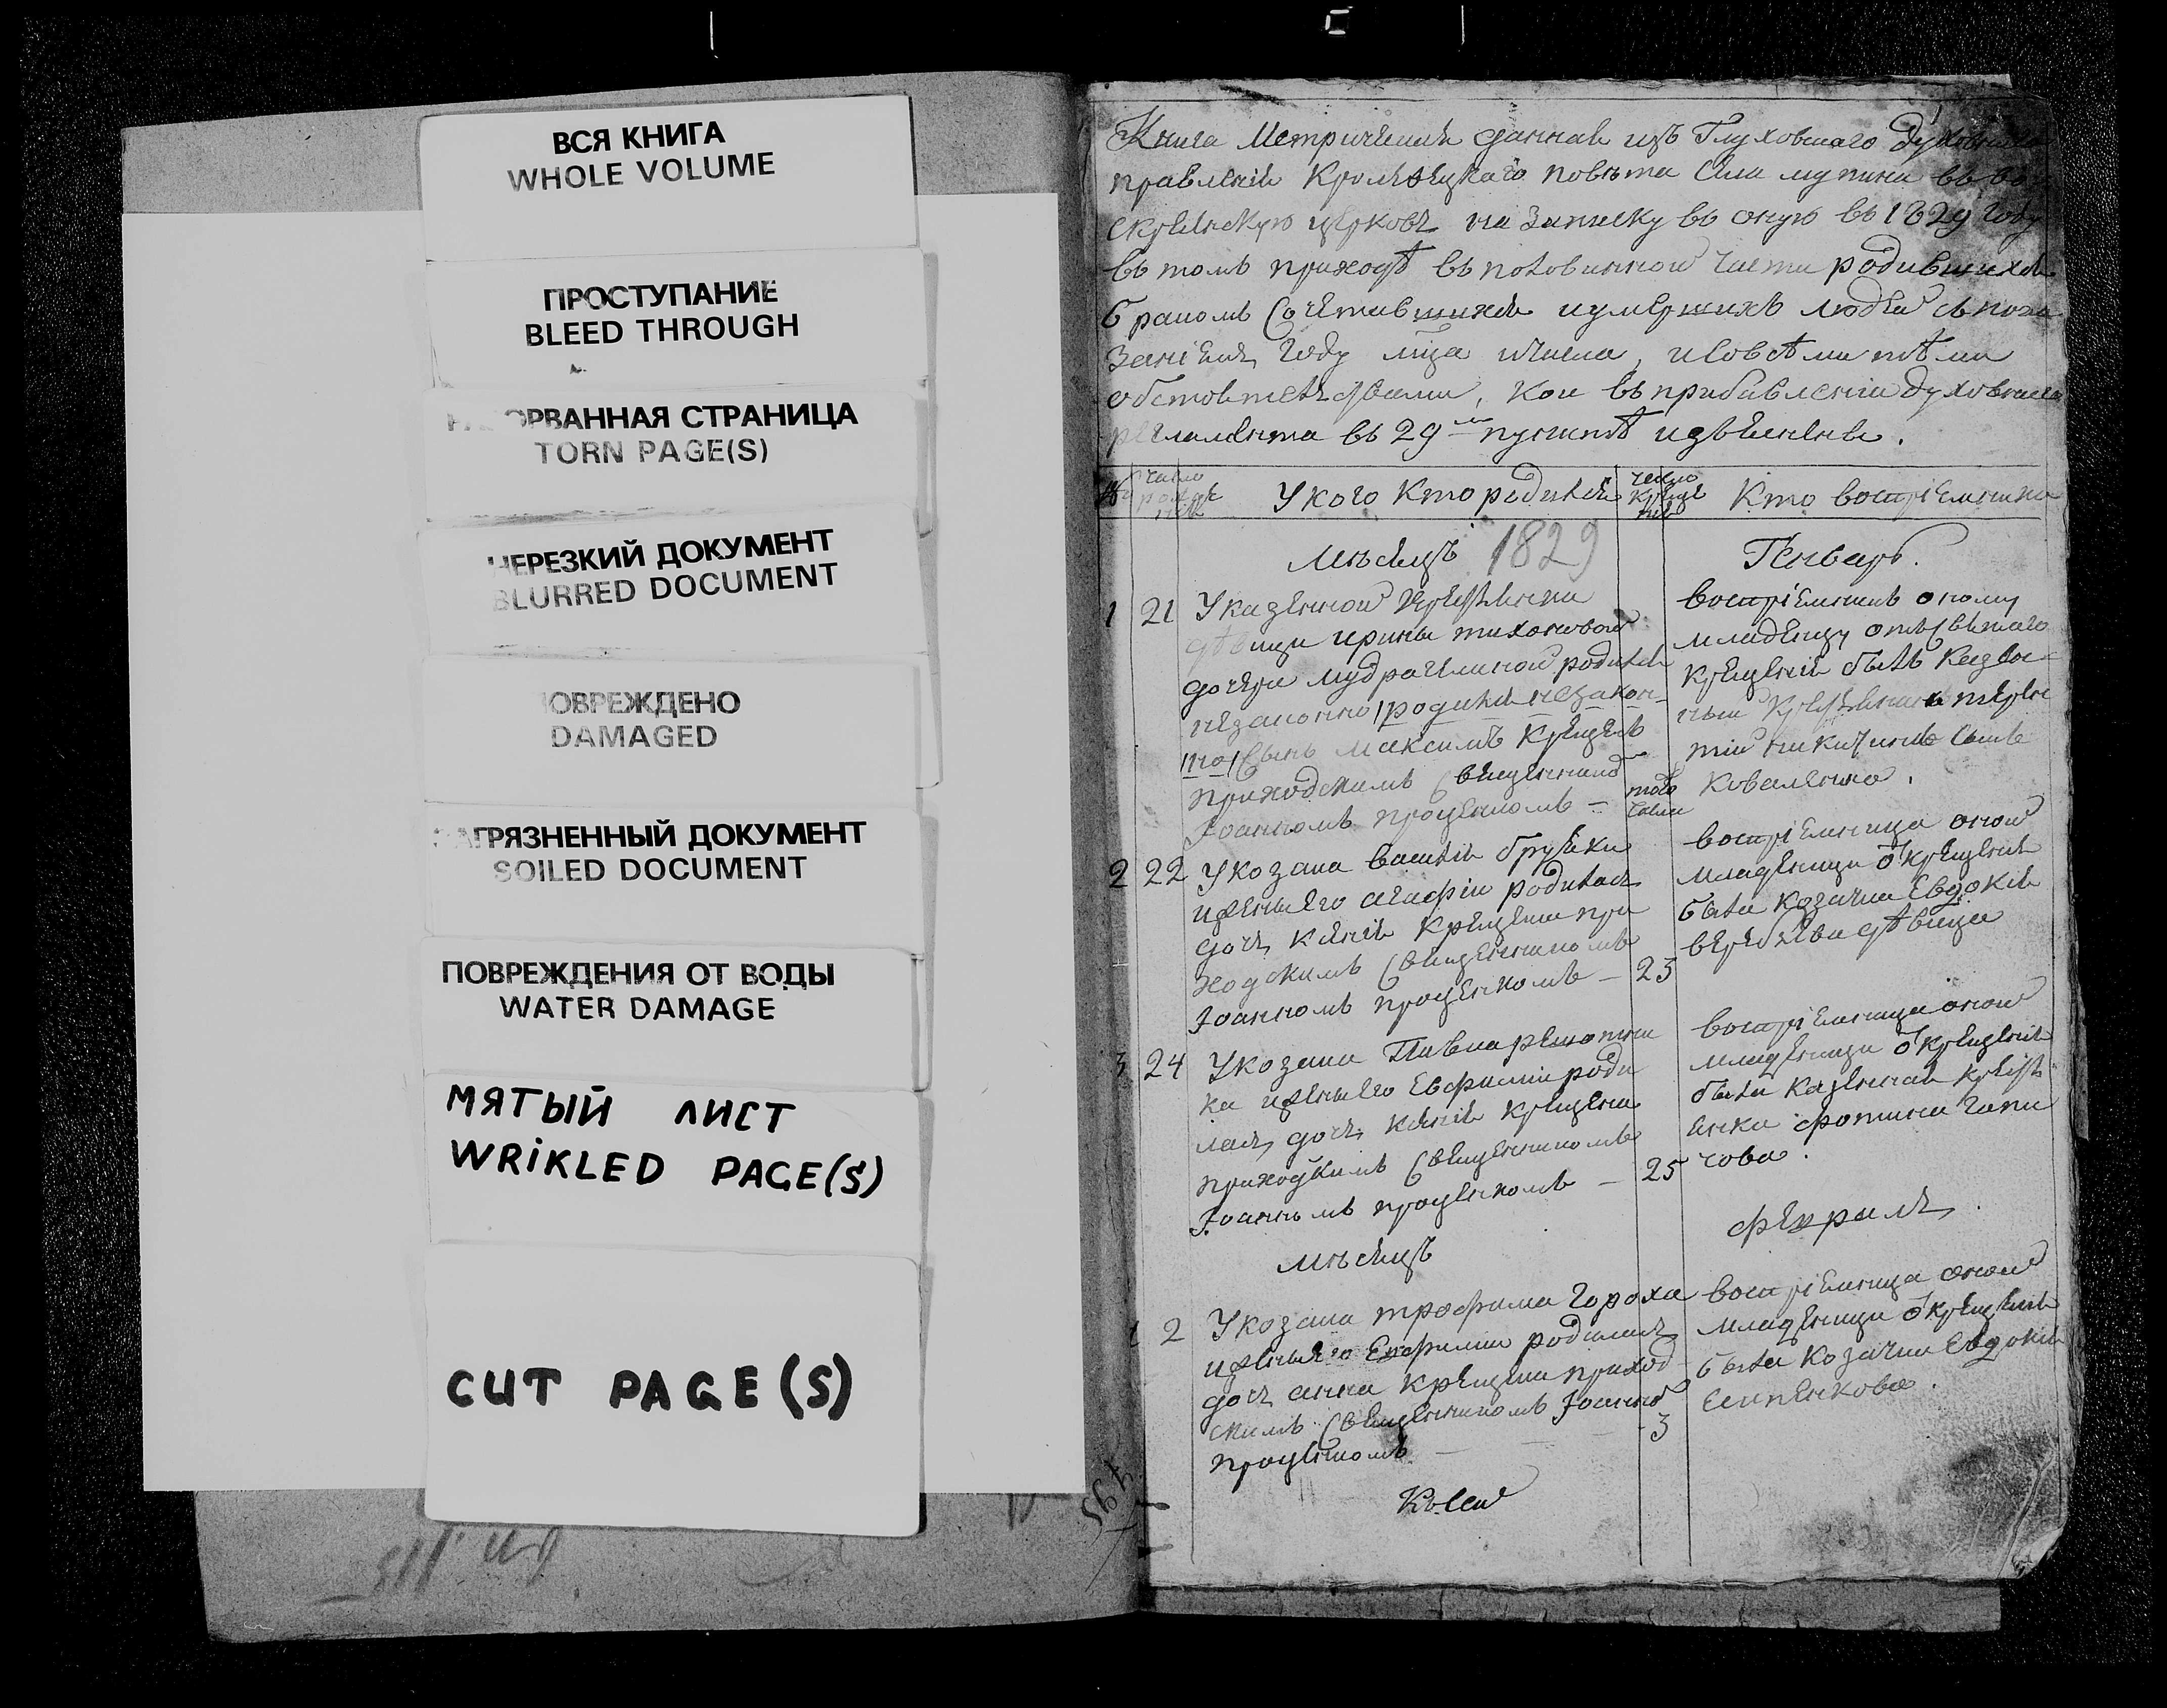 ВСЯ КНИГА
WHOLE VOLUME
ПРОСТУПАНИЕ
BLEED THROUGH
ОРВАННАЯ СТРАНИЦА
TORN PAGE(S)
НЕРЕЗКИЙ ДОКУМЕНТ
BLURRED DOCUMENT
ОВРЕЖДЕНО
DAMAGED
ЗАГРЯЗНЕННЫЙ ДОКУМЕНТ
SOILED DOCUMENT
ПОВРЕЖДЕНИЯ ОТ ВОДЫ
WATER DAMAGE
МЯТЫЙ ЛИСТ
WRiKLED PAGE(S)
CUT PAGE(S)
495
Книга Метрическая данная изъ Глуховскаго Духовнаго
правленія Кролевецкаго повѣта села мутина въ вос
кресенскую церковь на записку въ оную въ 1829 году
въ томъ приходѣ въ половинной части родившихся
бракомъ сочетавшихся и умершихъ людей съ пока
заніемъ году мца и числа, и со всѣми тѣми
обстоятельствами, кои въ прибавленіи духовнаго
регламента въ 29м пунктѣ изъяснены.
№ число рожденія У кого кто родился число крещенія Кто воспріемники
мѣсяцъ 1829 Генварь.
1 21 У казенной крестьянки
дѣвици ирины тихоновой
дочери мудрагелиной родился
незаконно /родился незакон
но/ сынъ максимъ крещенъ
приходскимъ священникъ
Іоанномъ проценкомъ – того числа
воспріемникъ оному
младенцу отъ святаго
крещенія былъ казен
ный крестьянинъ терен
тій никитинъ сынъ
коваленко.
2 22 У козака василія
и жены его агафіи родилась
дочь ксенія крещена при
ходскимъ священникомъ
Іоанномъ проценкомъ – 23
воспріемница оной
младеници о крещенія
была козачка Евдокія
дѣвица
3 24 У козака Павла
и жены его Евфиміи роди
лась дочь ксенія крещена
приходскимъ священникомъ
Іоанномъ проценкомъ – 25
воспріемница оной
младеници о крещенія
была казенная кресть
янка фотина гапи
чова.
мѣсяцъ февраль.
1 2 У козака трофима гороха
и жены его Евфиміи родилась
дочь анна крещена приход
скимъ священникомъ Іоанно
проценкомъ – 3
воспріемница оной
младеници о крещенія
была козачка Евдокія
Къ сей